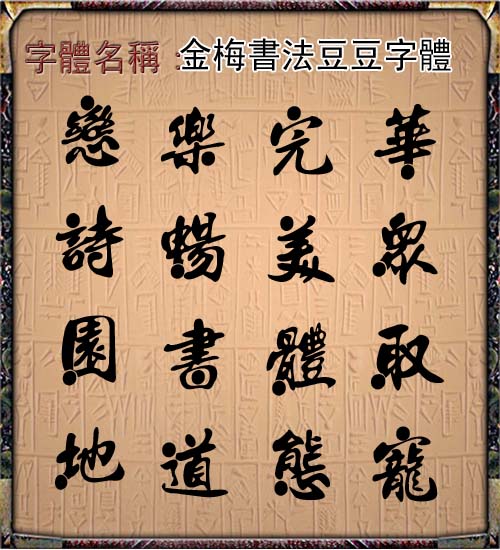 字體名稱：金梅書法豆豆字體
華眾取寵
完美體態
樂暢書道
戀詩園地